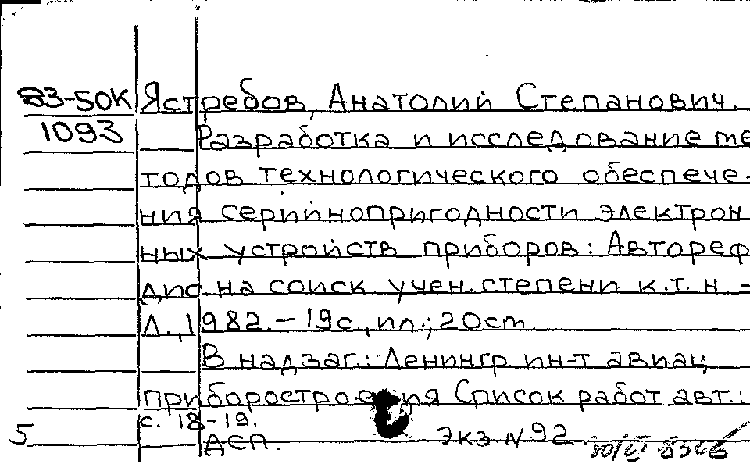 83-50К Ястребов, Анатолий Степанович.
1093 Разработка и исследование ме
тодов технологического обеспече-
ния серийнопригодности электрон
ных устройств приборов: Автореф
дис. на соиск. учен. степени к.т.н -
Л., 1982. - 19с, ил.; 20см
В надзаг.: Ленингр ин-т авиац
приборостроения Список работ авт.:
с. 18-19.
5 ДСП. Экз N 92.